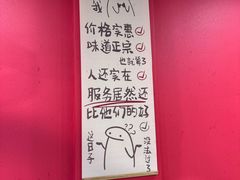 我
价格实惠
味道正宗
也就算了
人还实在
服务居然还
比他们的好
这日子
没法过了